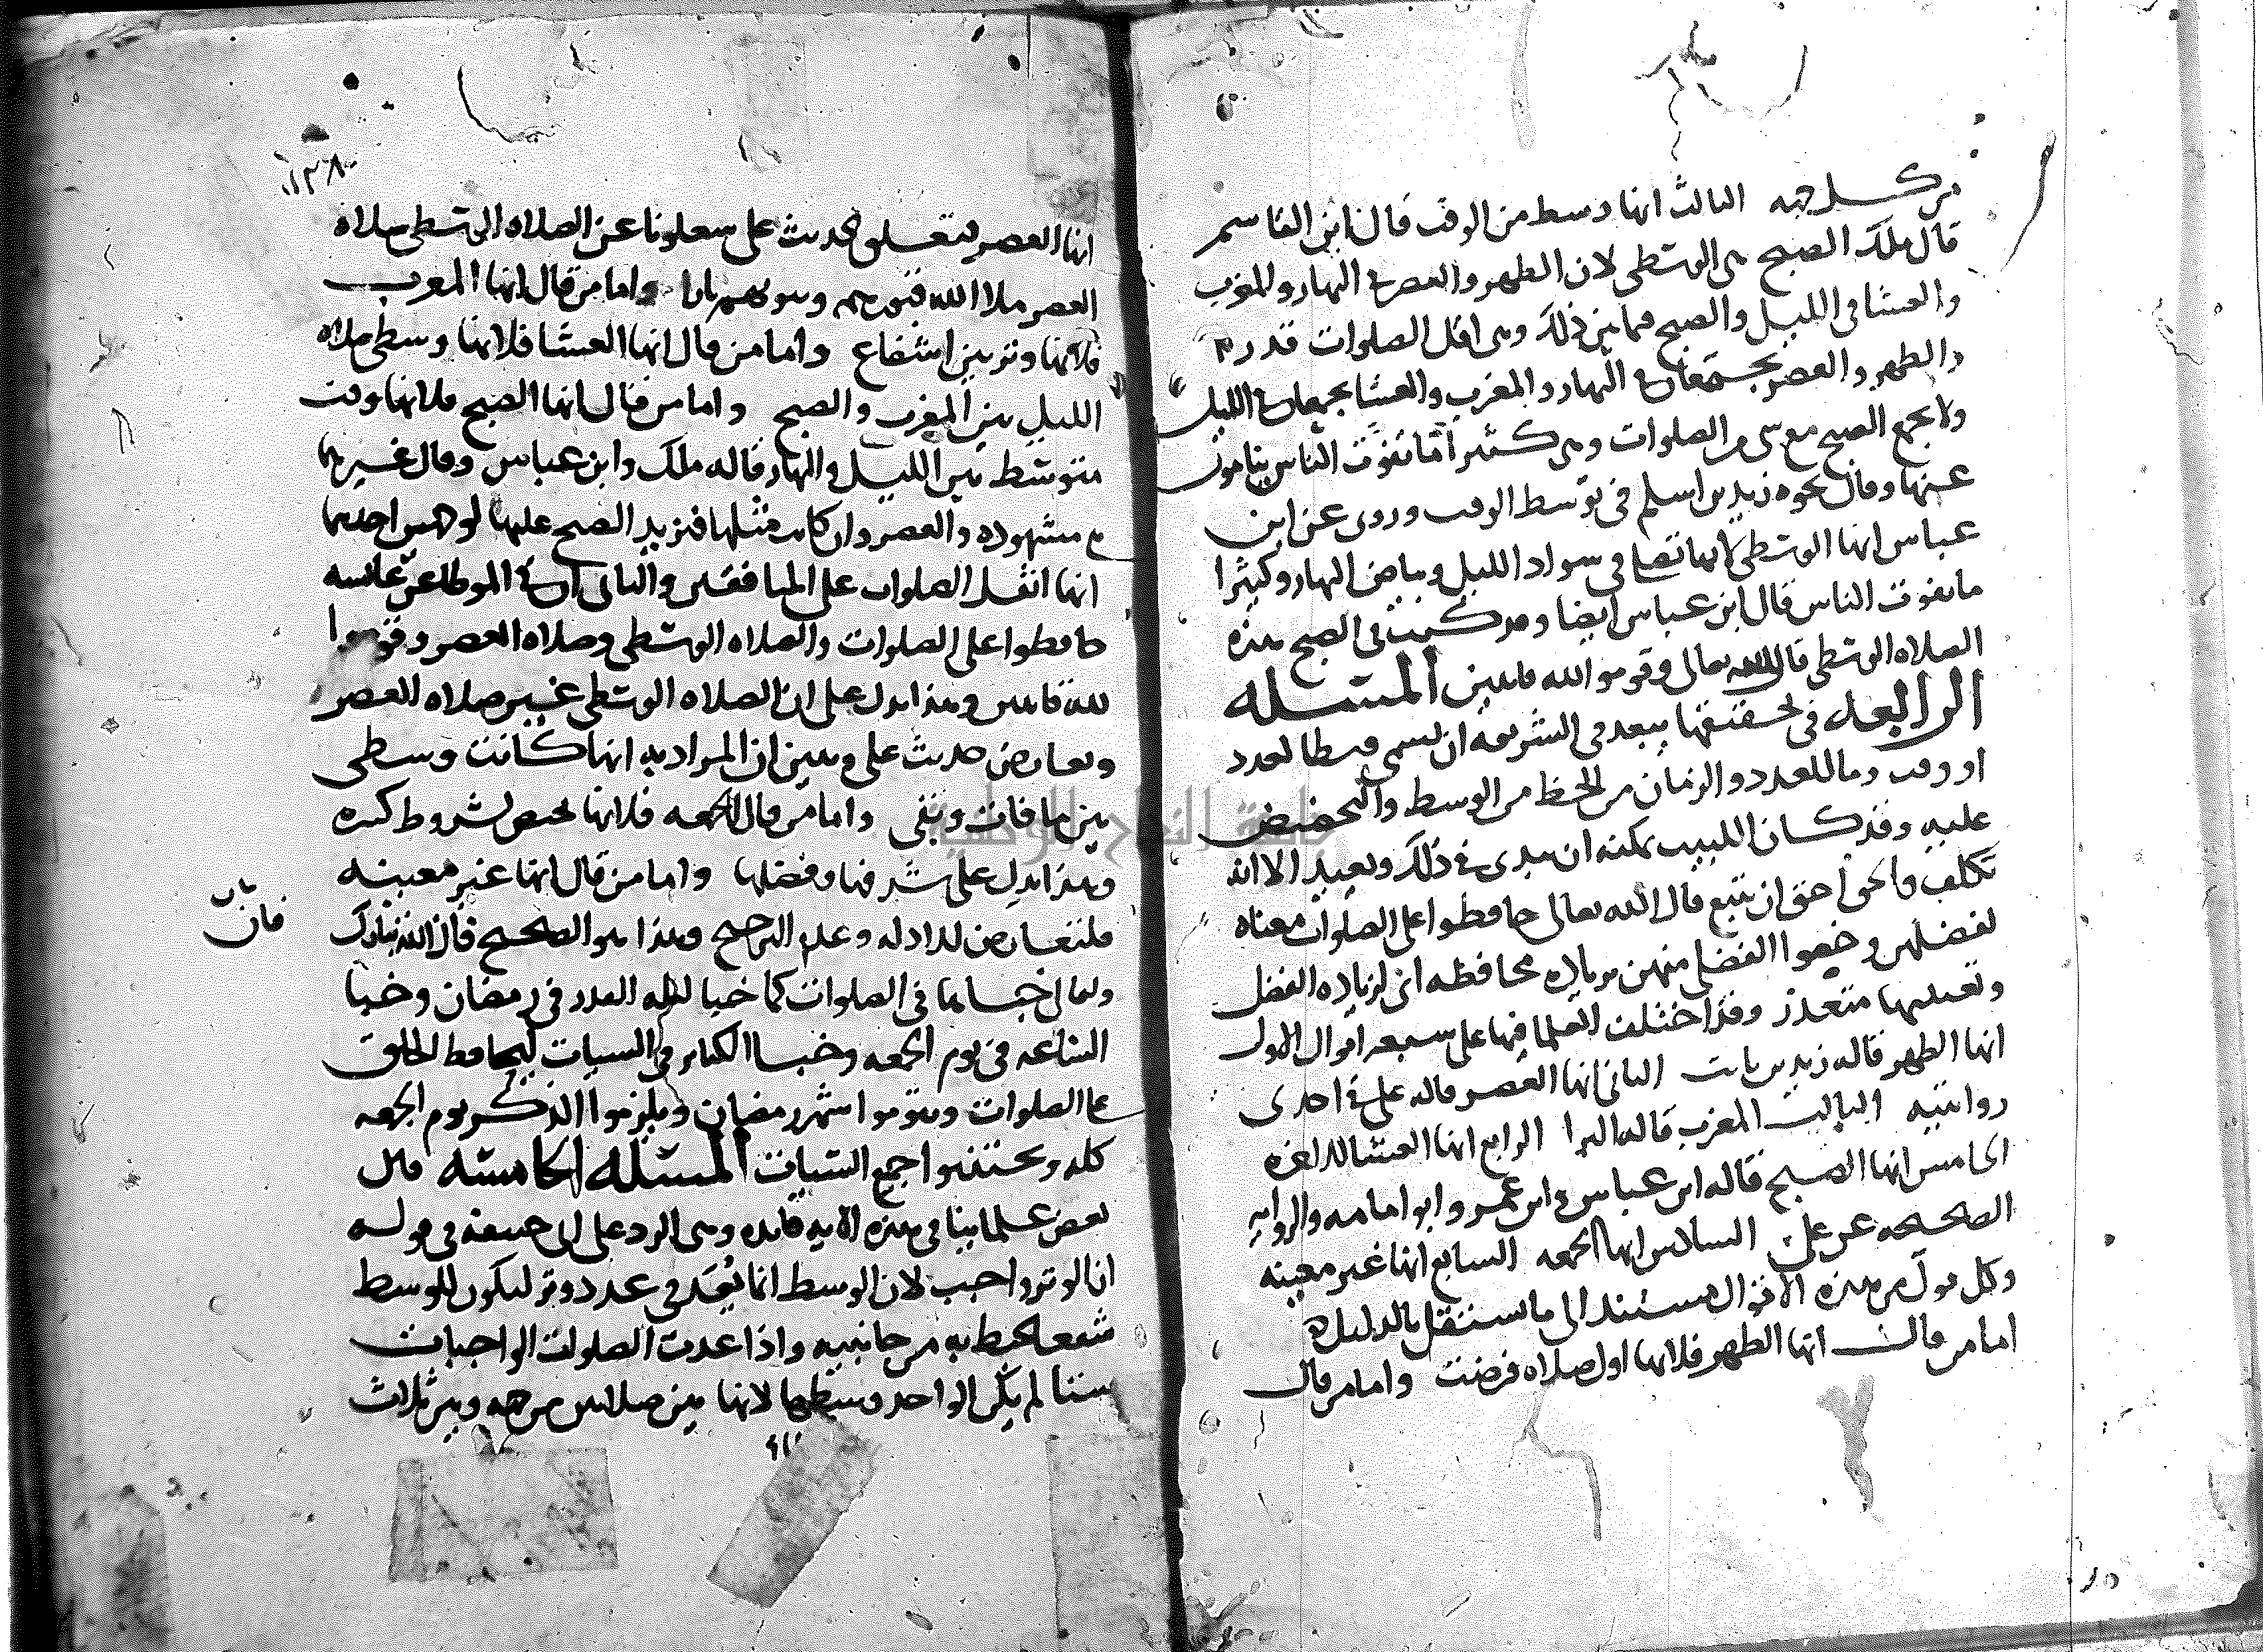 من كل جهه الثالث انها وسط من الوقت قال ابن القاسم
قال ملك الصبح هي الوسطى لان الظهر والعصر في النهار والمغرب
والعشا في الليل والصبح فيما بين ذلك وهي اقل الصلوات قدرا
والظهر والعصر يجتمعان في النهار والمغرب والعشا يجتمعان في الليل
ولا يجمع الصبح مع شي من الصلوات وهي كثيرا ما تفوت الناس ينامون
عنها وقال نحوه زيد بن اسلم في توسط الوقت وروى عن ابن
عباس انها الوسطى لانها تصلى في سواد الليل وبياض النهار وكثيرا
ما تفوت الناس قال ابن عباس ايضا وقد كنت في الصبح هذه
الصلاه الوسطى قال الله تعالى وقوموا لله قانتين المسئله
الرابعه في تحقيقها يبعد في الشريعه ان تسمى وسطا لعدد
او وقت وما للعدد والزمان من الحظ من الوسط والتحضيض
عليه وقد كان اللبيب يمكنه ان يبدي في ذلك ويعيد الا انه
تكلف والحق احق ان يتبع قال الله تعالى حافظوا على الصلوات معناه
لفضلهن وخصوا الفضلى منهن بزياده محافظه اي لزياده الفضل
وتعيينها متعذر وقد اختلف العلما فيها على سبعه اقوال الاول
انها الظهر قاله زيد بن ثابت الثاني انها العصر قاله علي في احدى
روايتيه الثالث المغرب قاله البرا الرابع انها العشا الاخره
الخامس انها الصبح قاله ابن عباس وابن عمر وابو امامه والروايه
الصحيحه عن علي السادس انها الجمعه السابع انها غير معينه
وكل قول من هذه الاقوال مستند الى ما لا يستقل بالدليل
اما من قال انها الظهر فلانها اول صلاه فرضت واما من قال
١٣٨
انها العصر فتعلق بحديث علي شغلونا عن الصلاه الوسطى صلاه
العصر ملا الله قبورهم وبيوتهم نارا واما من قال انها المغرب
فلانها وتر بين اشفاع واما من قال انها العشا فلانها وسطى صلاه
الليل بين المغرب والصبح واما من قال انها الصبح فلانها وقت
متوسط بين الليل والنهار قاله ملك وابن عباس وقال غيرهما
هي مشهوده والعصر وان كانت مثلها فتزيد الصبح عليها لوجهين احدهما
انها اثقل الصلوات على المنافقين والثاني ان في الموطا عن عائشه
حافظوا على الصلوات والصلاه الوسطى وصلاه العصر وقوموا
لله قانتين وهذا يدل على ان الصلاه الوسطى غير صلاه العصر
ويعارض حديث علي ويبين ان المراد به انها كانت وسطى
بين ما فات وبقي واما من قال الجمعه فلانها تختص بشروط كثيره
وهذا يدل على شرفها وفضلها واما من قال انها غير معينه
فلتعارض الادله وعدم الترجيح وهذا هو الصحيح فان الله تبارك
فان
وتعالى خباها في الصلوات كما خبا ليله القدر في رمضان وخبا
الساعه في يوم الجمعه وخبا الكبائر في السيات ليحافظ الخلق
على الصلوات ويقوموا شهر رمضان ويلزموا الذكر يوم الجمعه
كله ويجتنبوا جميع السيات المسئله الخامسه قال
بعض علماينا في هذه الايه فايده وهي الرد على ابي حنيفه في قوله
ان الوتر واجب لان الوسط انما يعد في عدد وتر ليكون الوسط
شفعا يحيط به من جانبيه واذا عدت الصلوات الواجبات
ستا لم يكن الواحد وسطها لانها بين صلاتين من جهه وبين ثلاث